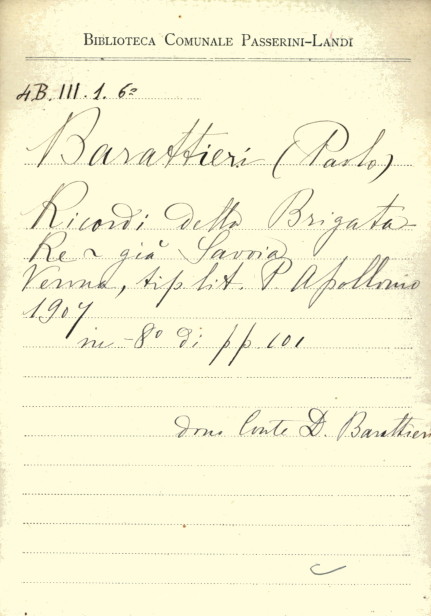 BIBLIOTECA COMUNALE PASSERINI-LANDI
4B. III. 1. 6º
Barattieri (Paolo)
Ricordi della Brigata
Re ~ già Savoia
tip lit. P. Apollonio
1907
in - 8º di pp. 101
dono Conte D. Barattieri